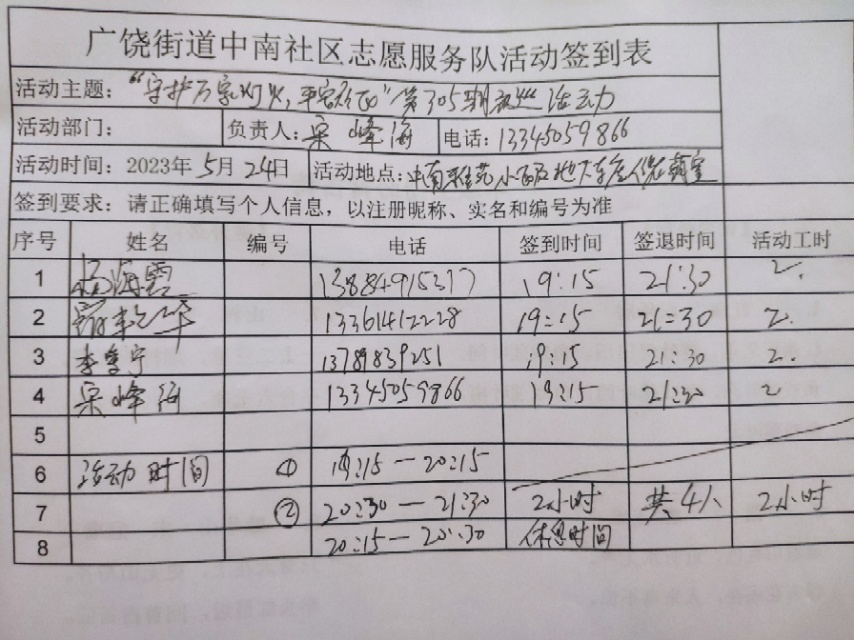 广饶街道中南社区志愿服务队活动签到表
活动主题：“守护万家灯火，平安有你”第305期夜巡活动
活动部门： 负责人：宋峰海 电话：13345059866
活动时间：2023年5月24日 活动地点：中南雅苑小区及地下车库
签到要求：请正确填写个人信息，以注册昵称、实名和编号为准
序号 姓名 编号 电话 签到时间 签退时间 活动工时
1 杨海霞 13884915377 19:15 21:30 2.
2 13361412228 19:15 21:30 2.
3 李雪宁 13789839251 19:15 21:30 2.
4 宋峰海 13345059866 19:15 21:30 2
5
6 活动时间 ① 19:15—20:15
7 ② 20:30—21:30 2小时 共4人 2小时
8 20:15—20:30 休息时间